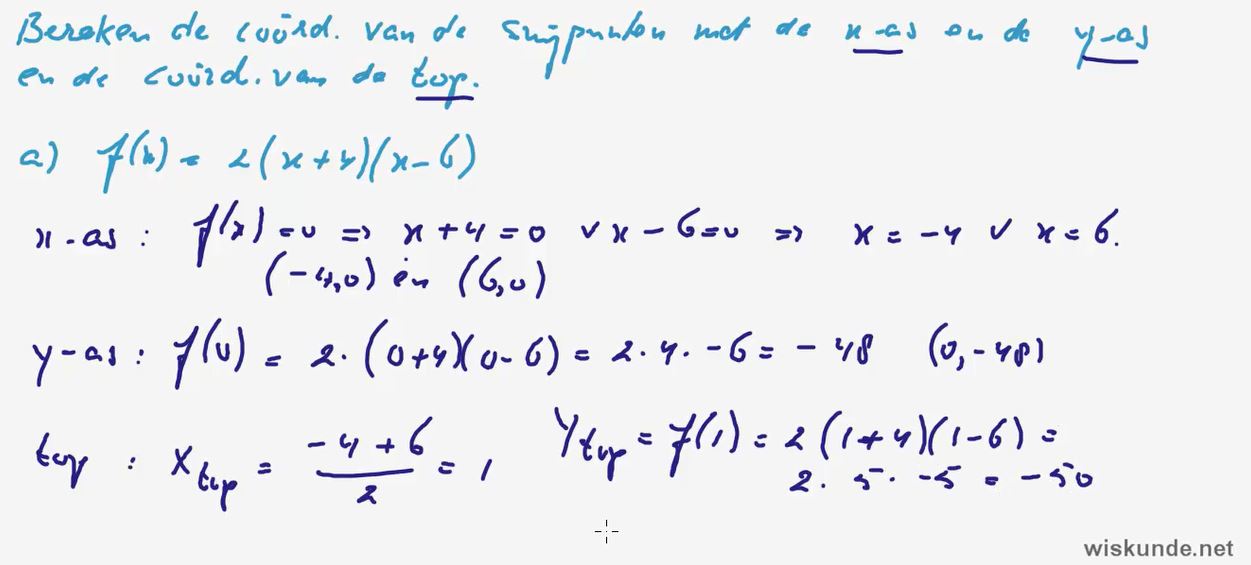 Bereken de coörd. van de snijpunten met de x-as en de y-as
en de coörd. van de top.
a) f(x) = 2(x+4)(x-6)
x-as : f(x)=0 => x+4=0 ∨ x-6=0 => x = -4 ∨ x = 6.
(-4,0) en (6,0)
y-as : f(0) = 2·(0+4)(0-6) = 2·4·-6 = -48 (0,-48)
top : x_top = (-4+6)/2 = 1 y_top = f(1) = 2(1+4)(1-6) =
2·5·-5 = -50
wiskunde.net